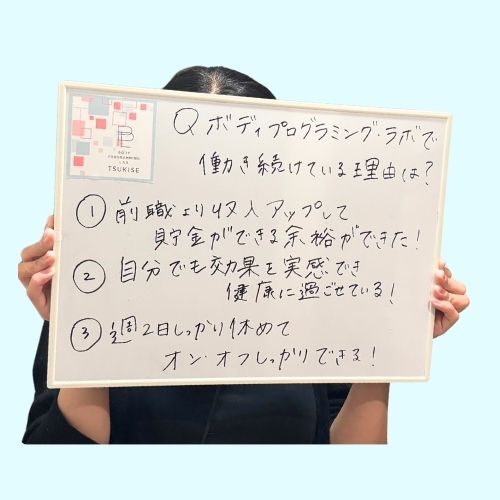 Q ボディプログラミング・ラボで
働き続けている理由は?
① 前職より収入アップして
貯金ができる余裕ができた!
② 自分でも効果を実感でき
健康に過ごせている!
③ 週2日しっかり休めて
オン・オフしっかりできる!
LAB
TSUKISE